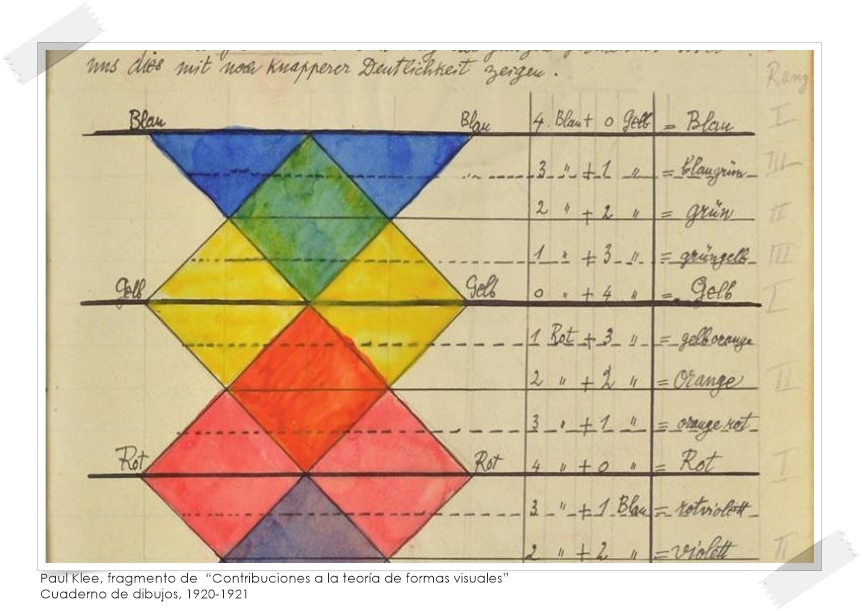 uns dies mit noch knapperer Deutlichkeit zeigen.
Rang
Blau Blau 4 Blau + 0 Gelb = Blau I
3 " + 1 " = blaugrün III
2 " + 2 " = grün II
1 " + 3 " = grüngelb III
Gelb Gelb 0 " + 4 " = Gelb I
1 Rot + 3 " = gelborange
2 " + 2 " = Orange II
3 " + 1 " = orangerot
Rot Rot 4 " + 0 " = Rot I
3 " + 1 Blau = rotviolett
2 " + 2 " = violett II
Paul Klee, fragmento de “Contribuciones a la teoría de formas visuales”
Cuaderno de dibujos, 1920-1921